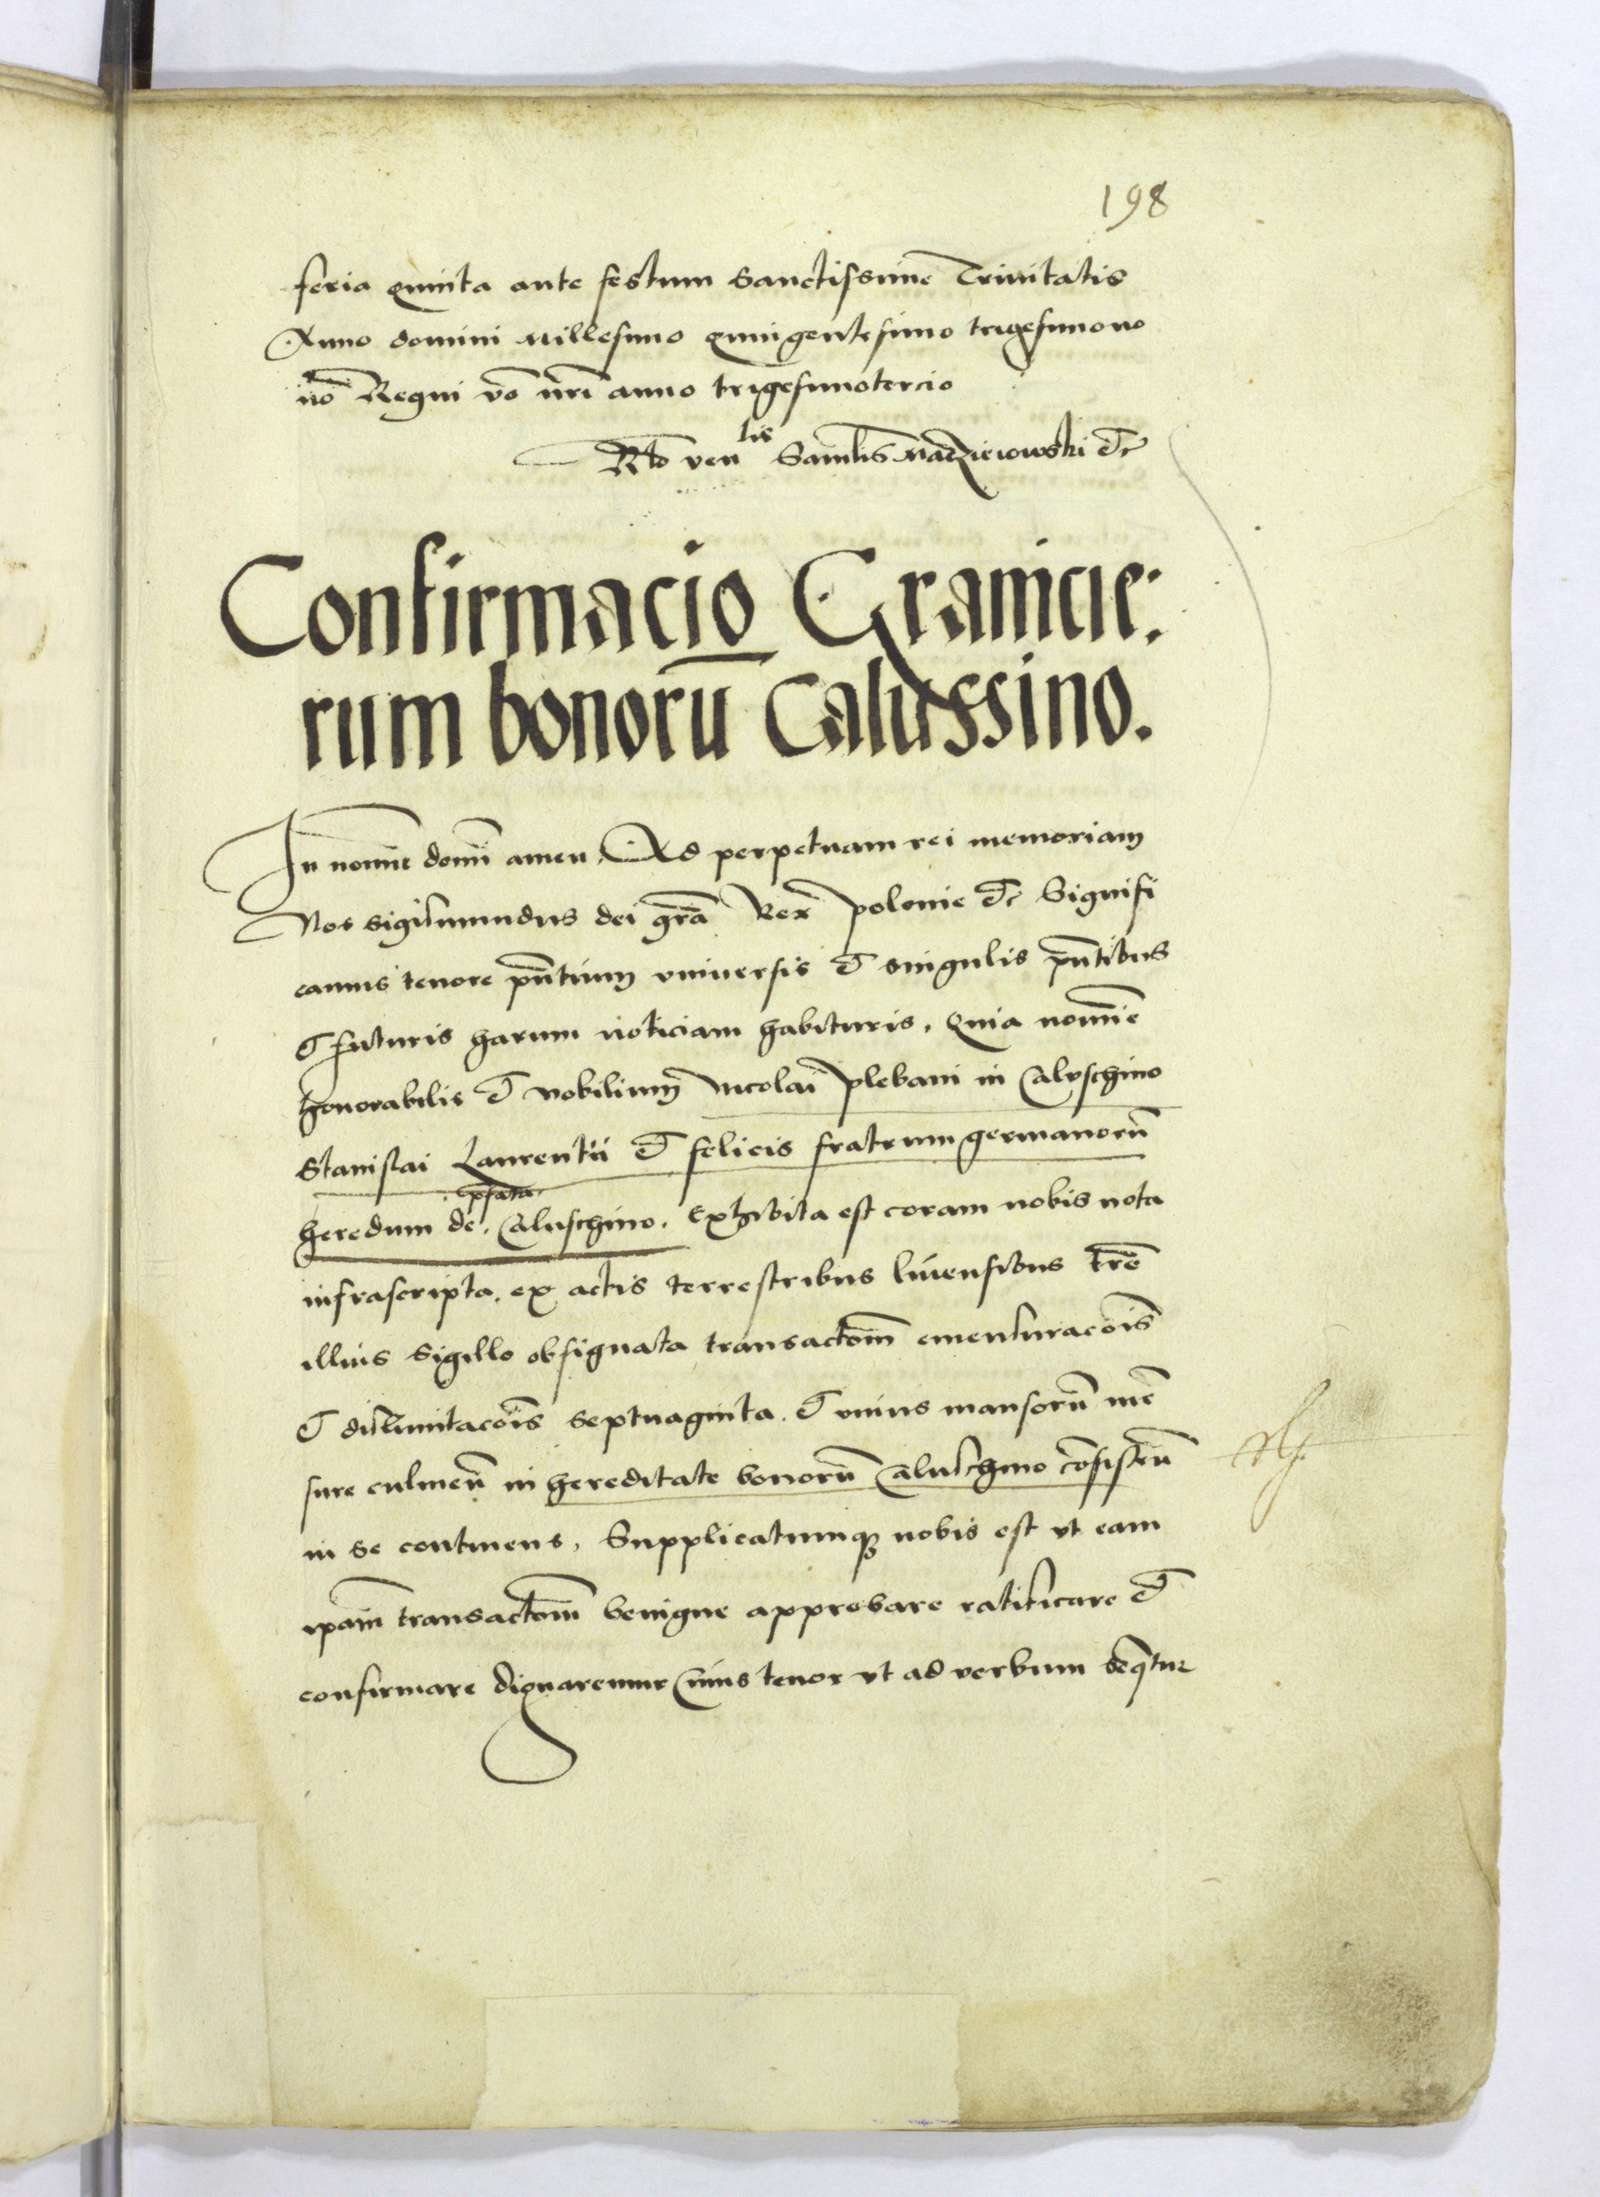 198
feria quinta ante festum Sanctissime Trinitatis
Anno domini Millesimo quingentesimo trigesimono
no Regni vo nri anno trigesimotercio
Rlo ven lis Samlis Maczieiowski etc
Confirmacio Granicie:
rum bonorū Calussino.
In nomine domi amen. Ad perpetuam rei memoriam
Nos Sigismundus dei gra Rex polonie etc Signifi
camus tenore pntium vniversis et singulis pntibus
et futuris harum noticiam habituris. Quia nomine
honorabilis et nobilium Nicolai plebani in Caluschino
Stanislai Laurentii et felicis fratrum germanorū
heredum de pfata Caluschino. Exhibita est coram nobis nota
infrascripta ex actis terrestribus livensibus tre
illius Sigillo obsignata transactom emensuracois
et dislimitacois Septuaginta et vnius mansorū me
sure culmen in hereditate bonorū Caluschino consisten
in se continens. Supplicatumq3 nobis est vt eam
ipam transactom benigne approbare ratificare et
confirmare dignaremur Cuius tenor vt ad verbum seqtur